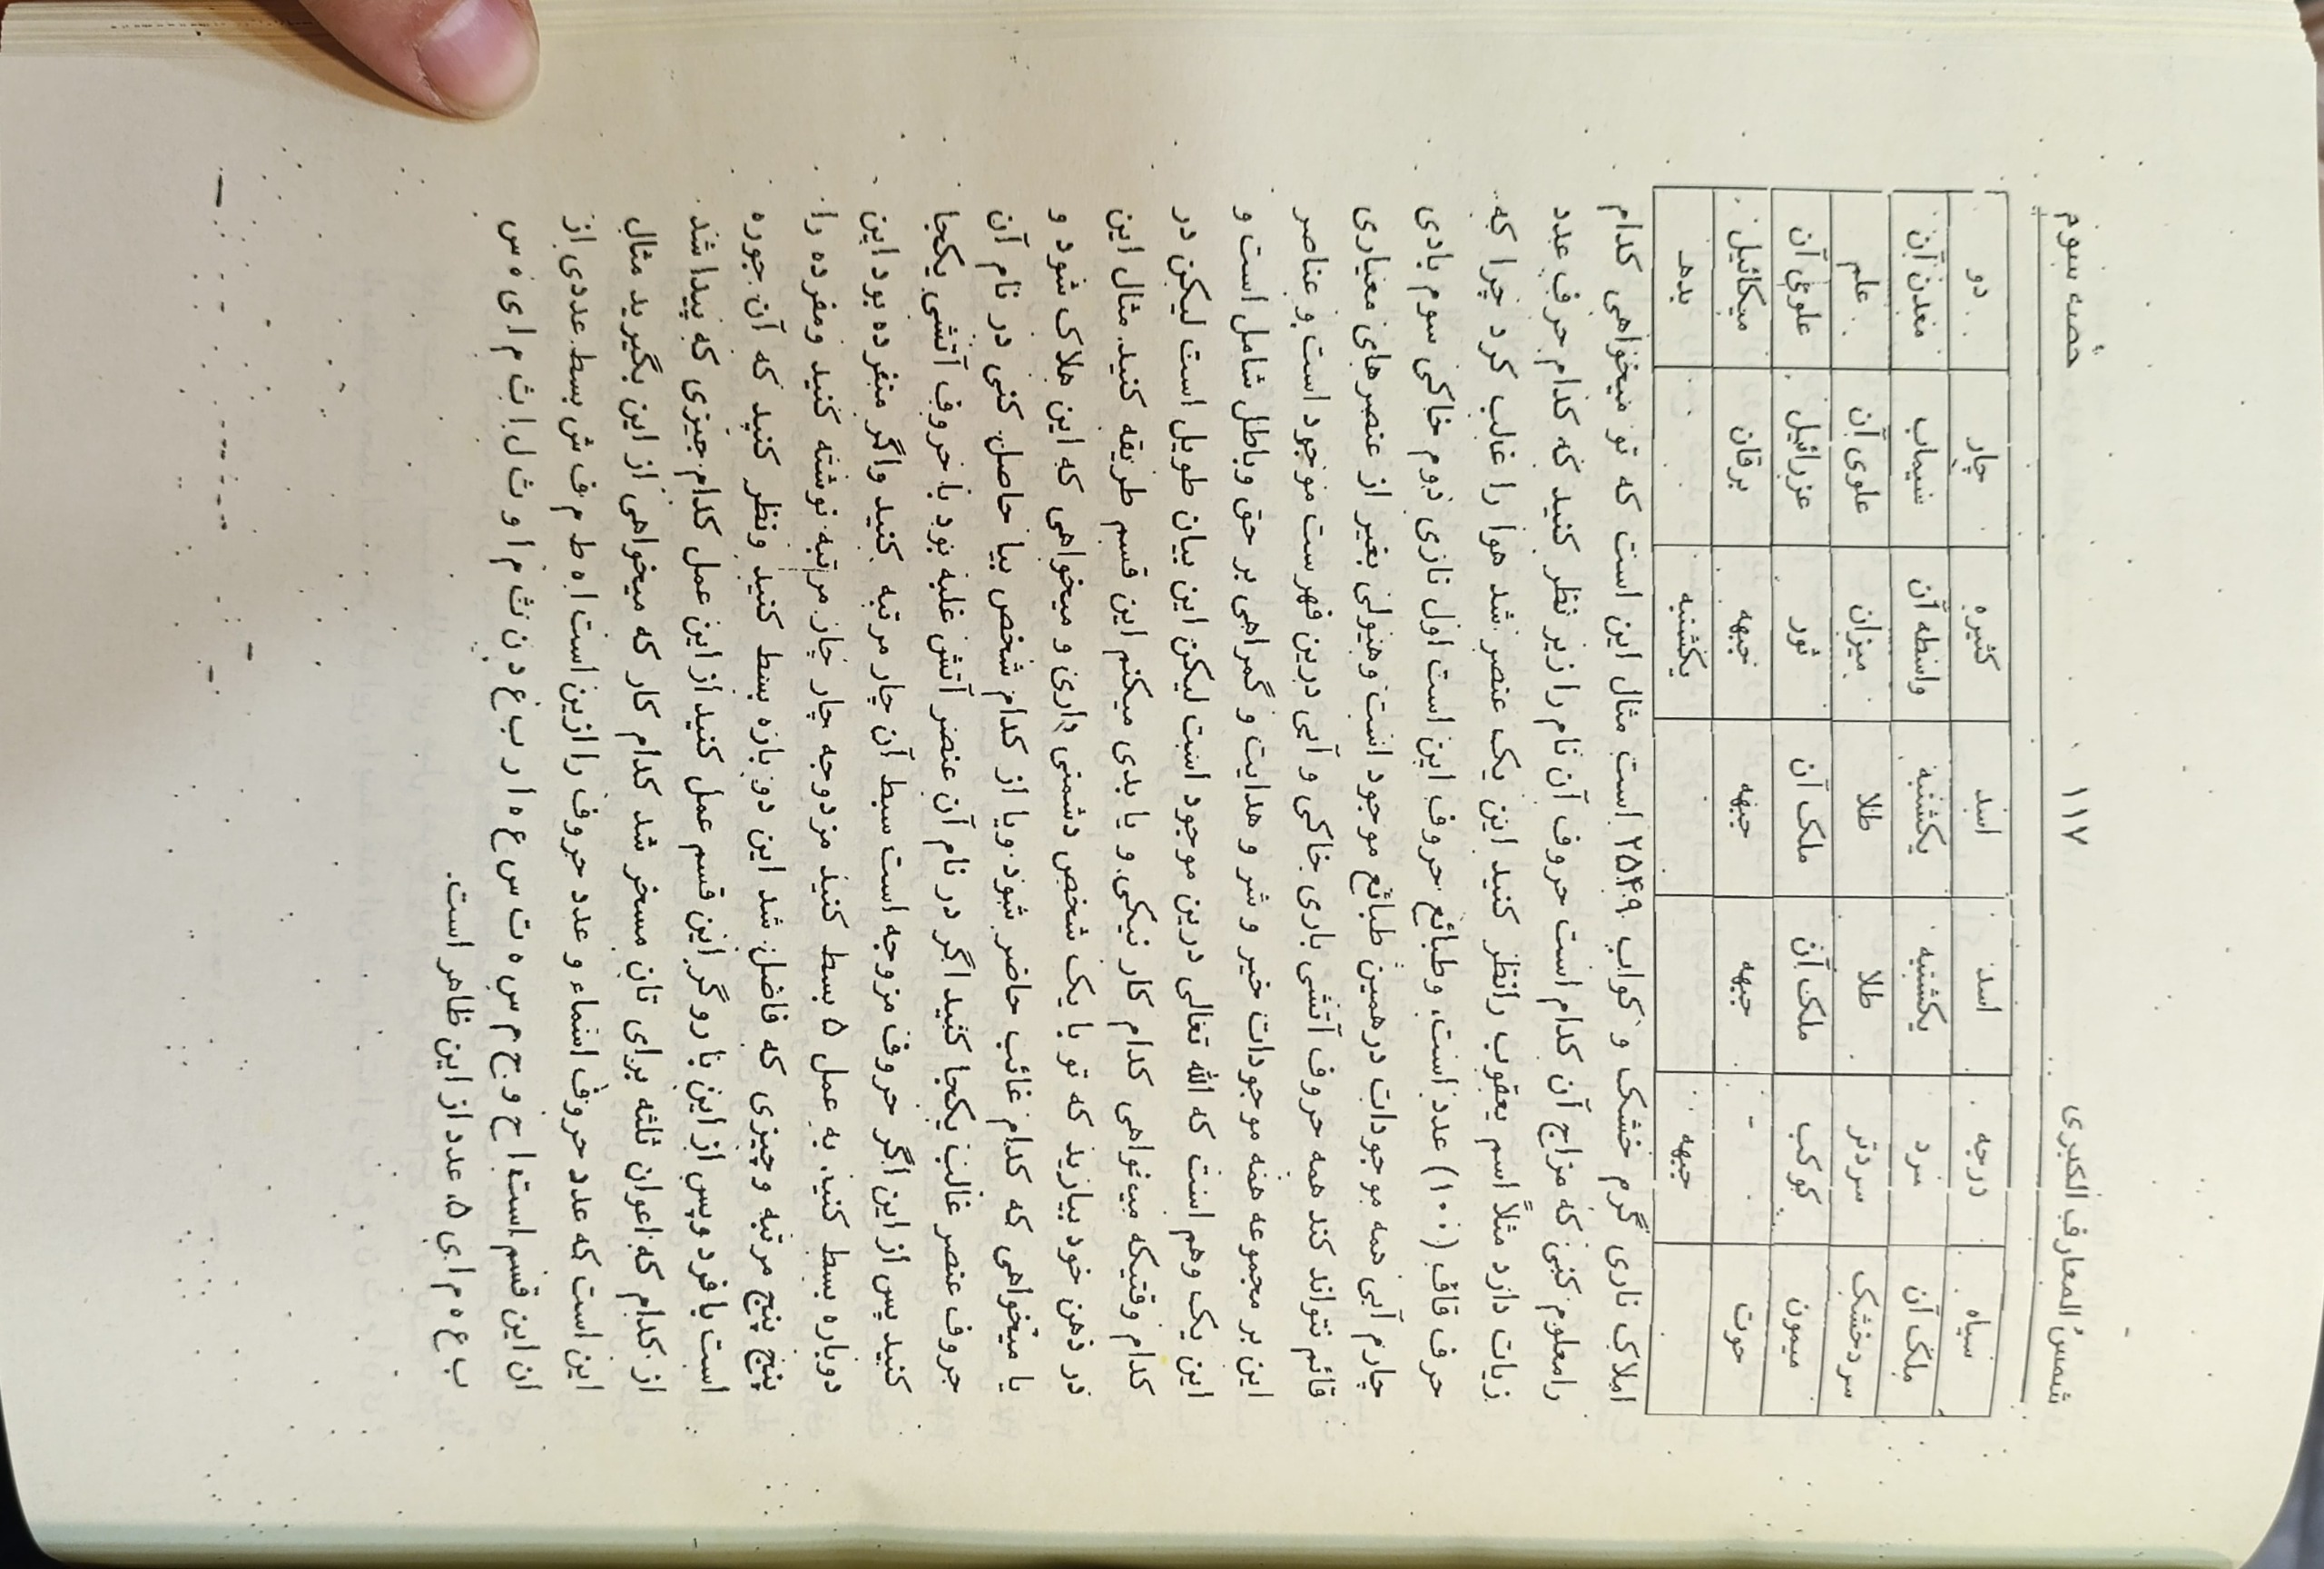 شمس المعارف الکبری ۱۱۷ حصه سوم
سیاه درجه اسد اسد کثیره چار دو
ملک آن سرد یکشنبه یکشنبه واسطه آن سیماب معدن آن
سرد خشک سردتر طلا طلا میزان علوی آن علم
میمون کوکب ملک آن ملک آن ثور عزرائیل علوی آن
حوت - جبهه جبهه جبهه یرقان میکائیل
جبهه یکشنبه بدهد
املاک ناری گرم خشک و کواب ۲۵۴۹ است مثال این است که تو میخواهی کدام
را معلوم کنی که مزاج آن کدام است حروف آن نام را زیر نظر کنید که کدام حرف عدد
زیات دارد مثلاً اسم یعقوب را نظر کنید این یک عنصر شد هوا را غالب کرد چرا که
حرف قاف (۱۰۰) عدد است، و طبائع حروف این است اول ناری دوم خاکی سوم بادی
چارم آبی همه موجودات در همین طبائع موجود است وهیولی بغیر از عنصر های معیاری
قائم نتواند کند همه حروف آتشی باری خاکی و آبی درین فهرست موجود است و عناصر
این بر مجموعه همه موجودات خیر و شر و هدایت و گمراهی بر حق وباطل شامل است و
این یک وهم است که الله تعالی درین موجود است لیکن این بیان طویل است لیکن در
کدام وقتیکه میخواهی کدام کار نیکی و یا بدی میکنم این قسم طریقه کنید مثال این
در ذهن خود بیارید که تو با یک شخص دشمنی داری و میخواهی که این هلاک شود و
یا میخواهی که کدام غائب حاضر شود ویا از کدام شخص بیا حاصل کنی در نام آن
حروف عنصر غالب یکجا کنید اگر در نام آن عنصر آتش غلبه بود با حروف آتشی یکجا
کنید پس از این اگر حروف مزوجه است سبط آن چار مرتبه کنید واگر متفرده بود این
دوباره بسط کنید، به عمل ۵ بسط کنید مزدوجه چار چار مرتبه نوشته کنید ومفرده را
پنج پنج مرتبه وچیزی که فاضل شد این دو باره بسط کنید ونظر کنید که آن جوره
است یا فرد وپس از این با رو گر این قسم عمل کنید از این عمل کدام چیزی که پیدا شد
از کدام که اعوان ثلثه برای تان مسخر شد کدام کار که میخواهی از این بگیرید مثال
این است که عدد حروف اسماء و عدد حروف را ازین است ا ه ط م ف ش بسط عددی از
ان این قسم است ا ح و ج م س ه ت س ع ه ا ر ب غ د ن ث م ا و ث ل ا ث م ا ی ه س
ب ع ه م ا ی ۵، عدد از این ظاهر است.